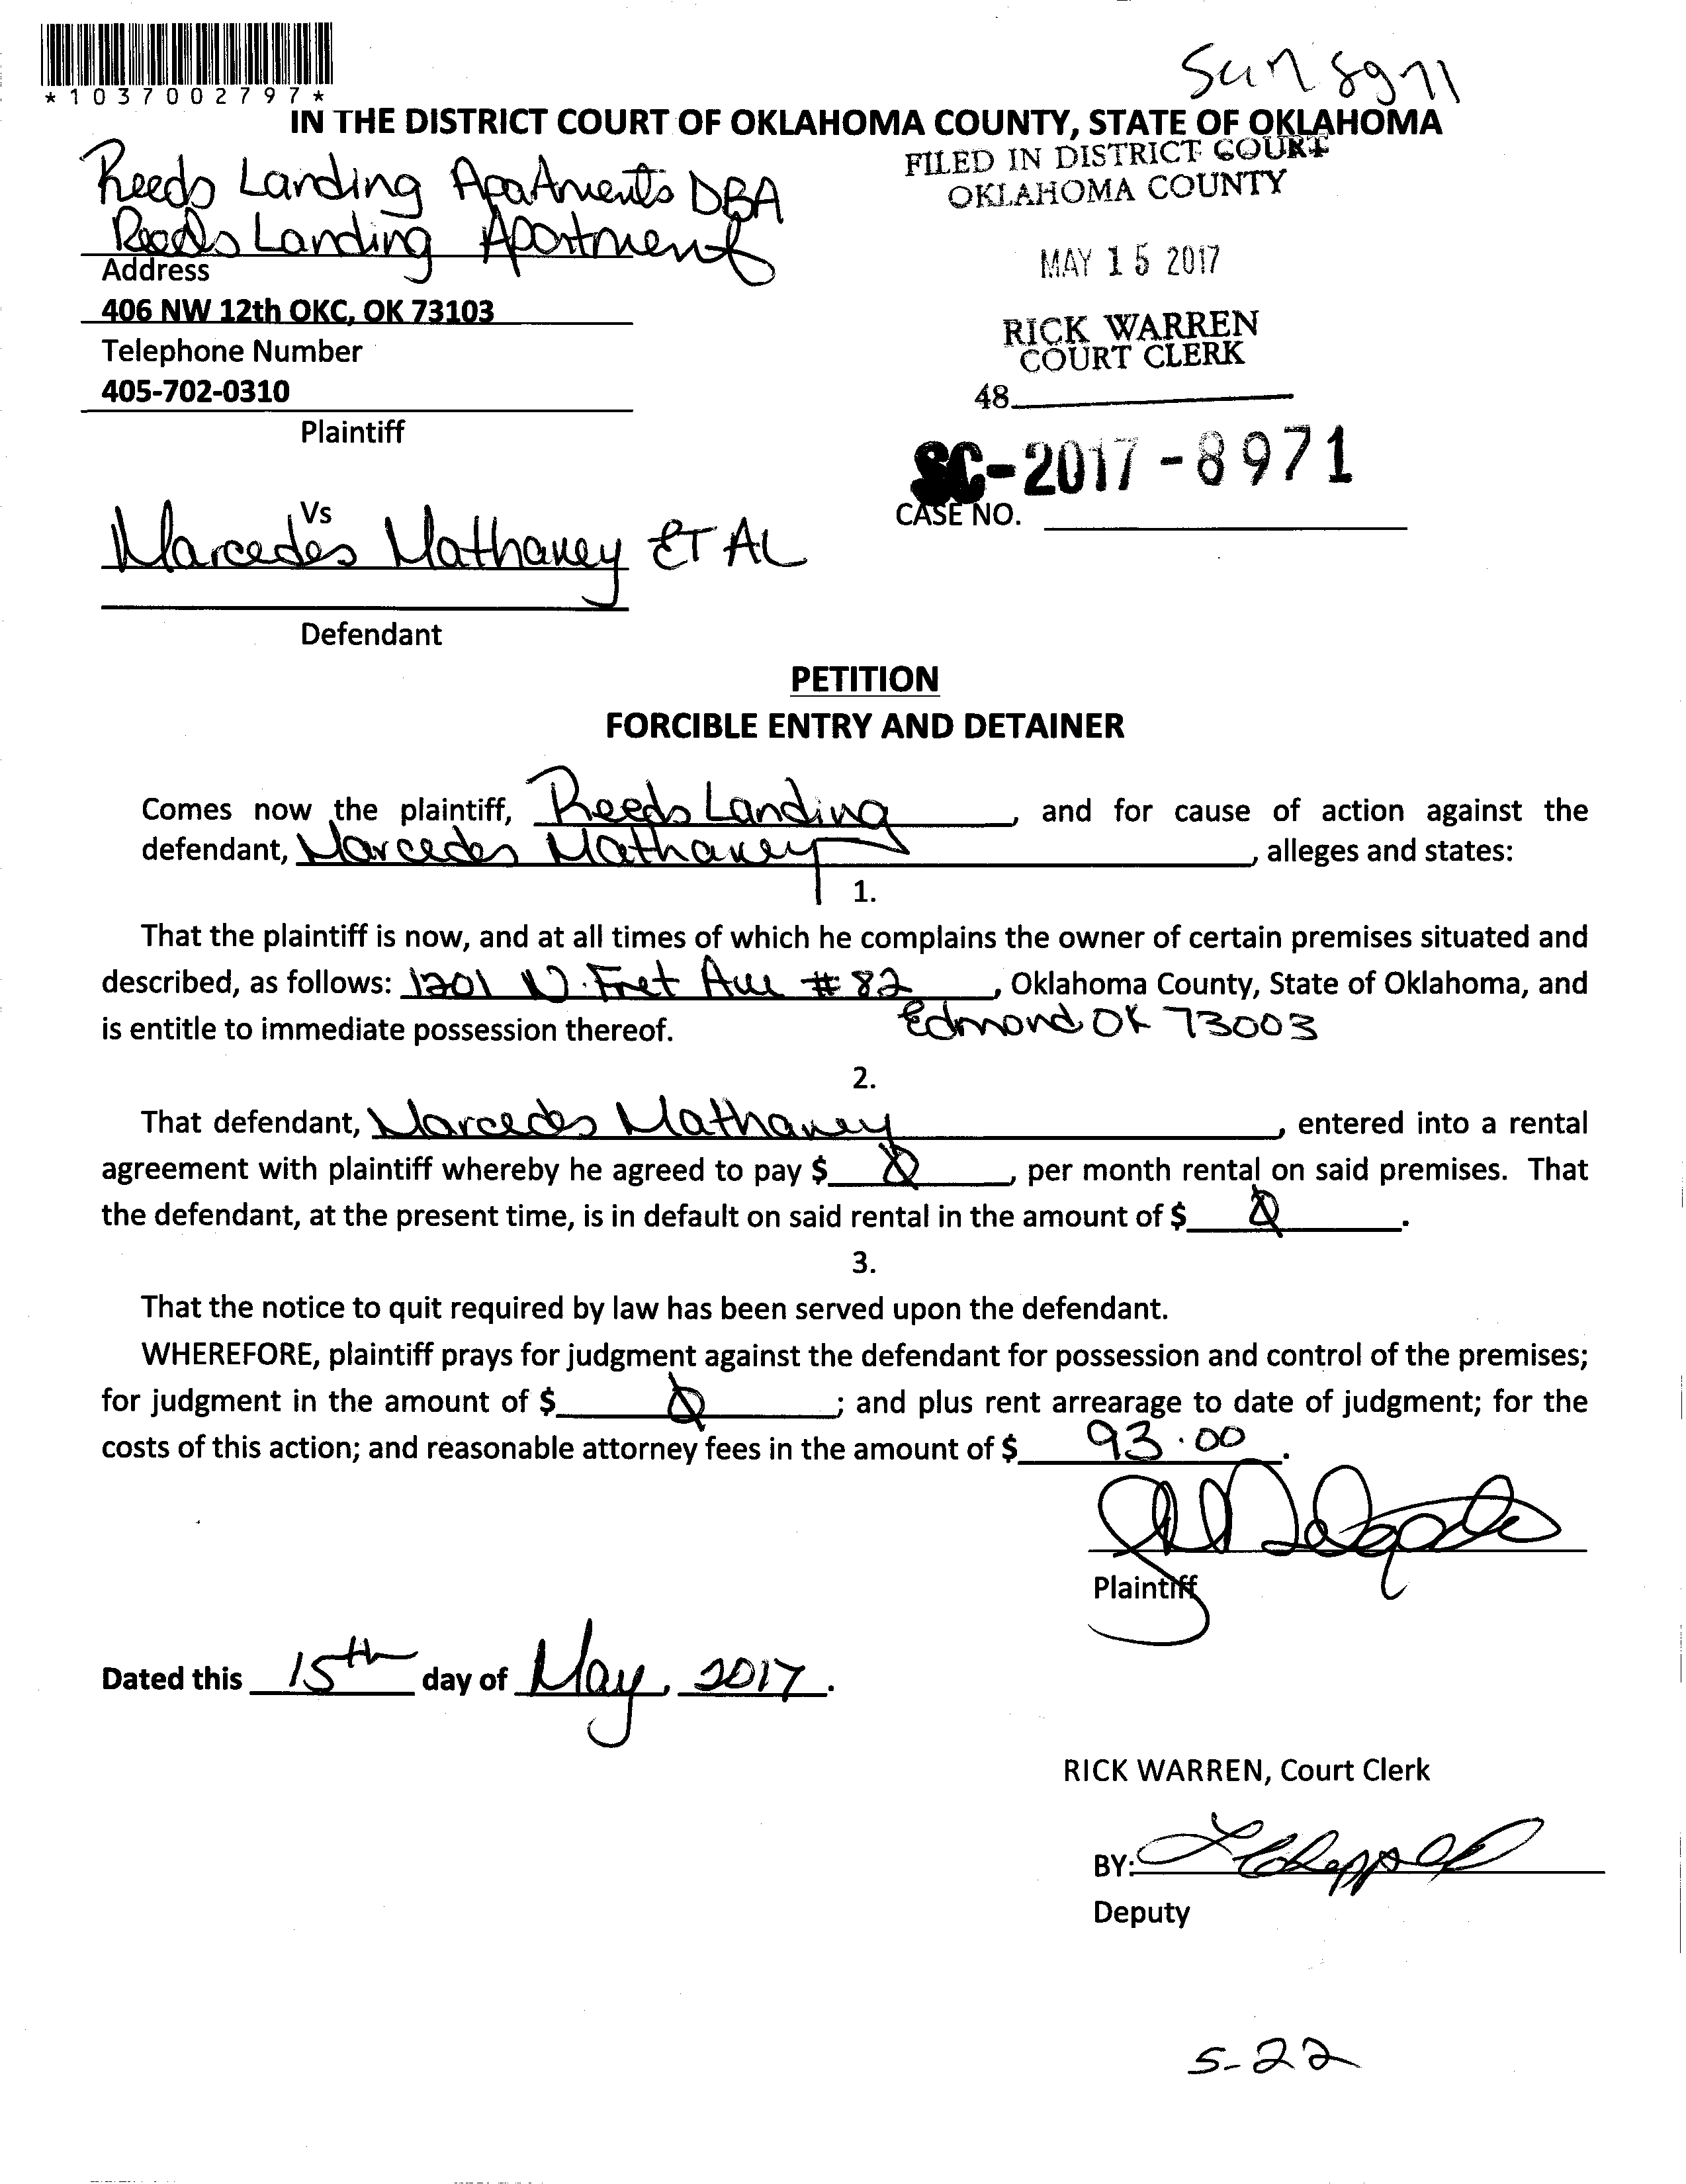 *1037002797*
Sum 8971
IN THE DISTRICT COURT OF OKLAHOMA COUNTY, STATE OF OKLAHOMA
FILED IN DISTRICT COURT
OKLAHOMA COUNTY
MAY 15 2017
RICK WARREN
COURT CLERK
48
SC-2017-8971
CASE NO.
Reeds Landing Apartments DBA
Reeds Landing Apartments
Address
406 NW 12th OKC, OK 73103
Telephone Number
405-702-0310
Plaintiff
Vs
Marcedes Mathaney ET AL
Defendant
PETITION
FORCIBLE ENTRY AND DETAINER
Comes now the plaintiff, Reeds Landing, and for cause of action against the
defendant, Marcedes Mathaney, alleges and states:
1.
That the plaintiff is now, and at all times of which he complains the owner of certain premises situated and
described, as follows: 1201 N. Fret Ave #82, Oklahoma County, State of Oklahoma, and
is entitle to immediate possession thereof. Edmond OK 73003
2.
That defendant, Marcedes Mathaney, entered into a rental
agreement with plaintiff whereby he agreed to pay $ 0, per month rental on said premises. That
the defendant, at the present time, is in default on said rental in the amount of $ 0.
3.
That the notice to quit required by law has been served upon the defendant.
WHEREFORE, plaintiff prays for judgment against the defendant for possession and control of the premises;
for judgment in the amount of $ 0; and plus rent arrearage to date of judgment; for the
costs of this action; and reasonable attorney fees in the amount of $ 93.00.
Plaintiff
Dated this 15th day of May, 2017.
RICK WARREN, Court Clerk
BY:
Deputy
5-22